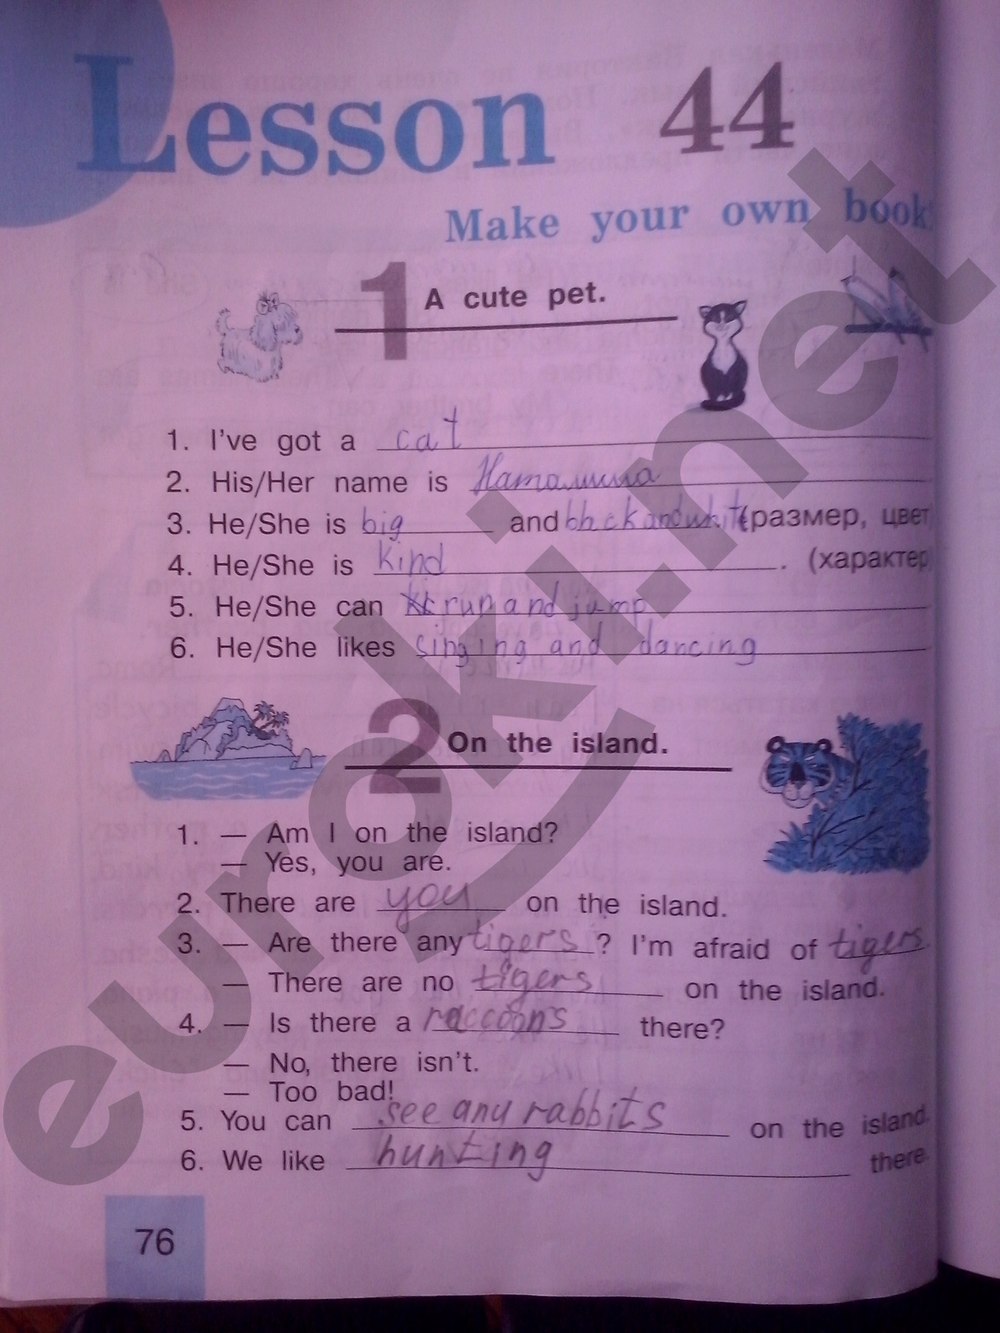 Lesson 44
Make your own book
1 A cute pet.
1. I've got a cat
2. His/Her name is
3. He/She is big and black and white (размер, цвет
4. He/She is kind . (характер
5. He/She can run and jump
6. He/She likes singing and dancing
2 On the island.
1. — Am I on the island?
— Yes, you are.
2. There are you on the island.
3. — Are there any tigers? I'm afraid of tigers.
— There are no tigers on the island.
4. — Is there a raccoons there?
— No, there isn't.
— Too bad!
5. You can see any rabbits on the island.
6. We like hunting there.
76
euroki.net